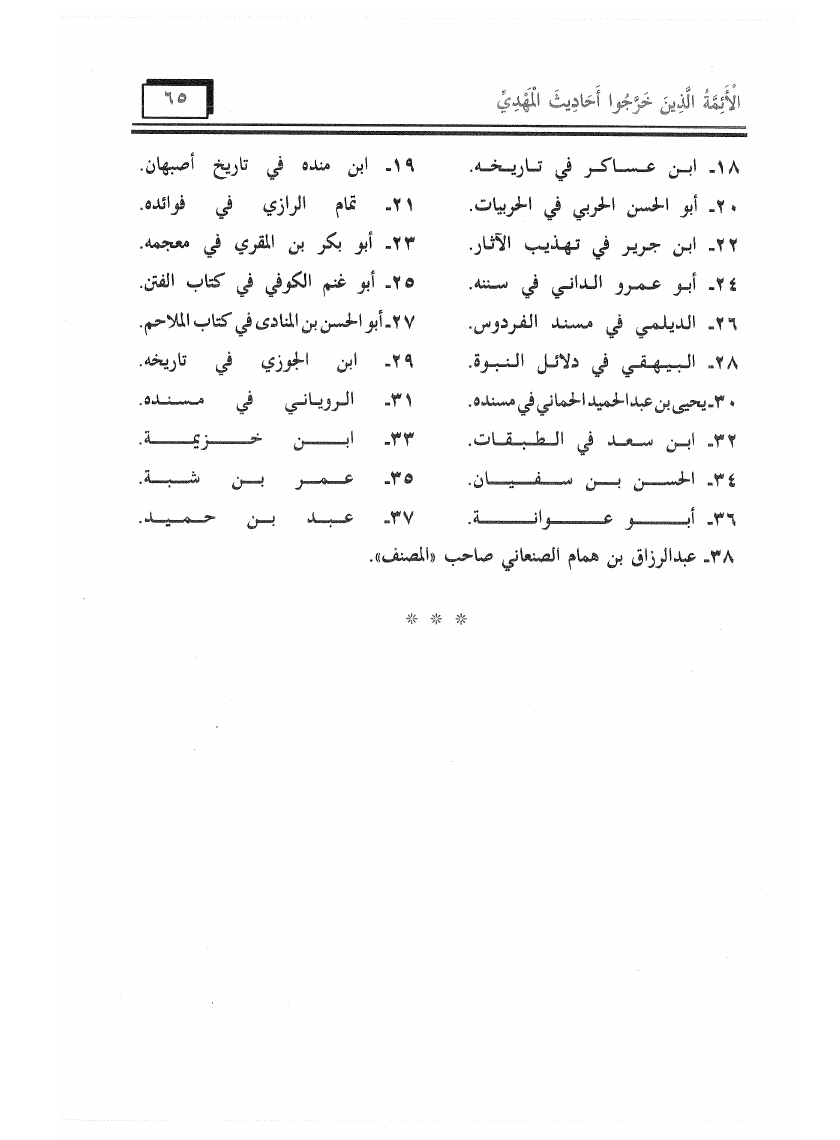 الْأَئِمَّةُ الَّذِينَ خَرَّجُوا أَحَادِيثَ الْمَهْدِيِّ ٦٥
١٨ـ ابن عساكر في تاريخه. ١٩ـ ابن منده في تاريخ أصبهان.
٢٠ـ أبو الحسن الحربي في الحربيات. ٢١ـ تمام الرازي في فوائده.
٢٢ـ ابن جرير في تهذيب الآثار. ٢٣ـ أبو بكر بن المقري في معجمه.
٢٤ـ أبو عمرو الداني في سننه. ٢٥ـ أبو غنم الكوفي في كتاب الفتن.
٢٦ـ الديلمي في مسند الفردوس. ٢٧ـ أبو الحسن بن المنادى في كتاب الملاحم.
٢٨ـ البيهقي في دلائل النبوة. ٢٩ـ ابن الجوزي في تاريخه.
٣٠ـ يحيى بن عبدالحميد الحماني في مسنده. ٣١ـ الروياني في مسنده.
٣٢ـ ابن سعد في الطبقات. ٣٣ـ ابن خزيمة.
٣٤ـ الحسن بن سفيان. ٣٥ـ عمر بن شبة.
٣٦ـ أبو عوانة. ٣٧ـ عبد بن حميد.
٣٨ـ عبدالرزاق بن همام الصنعاني صاحب «المصنف».
* * *